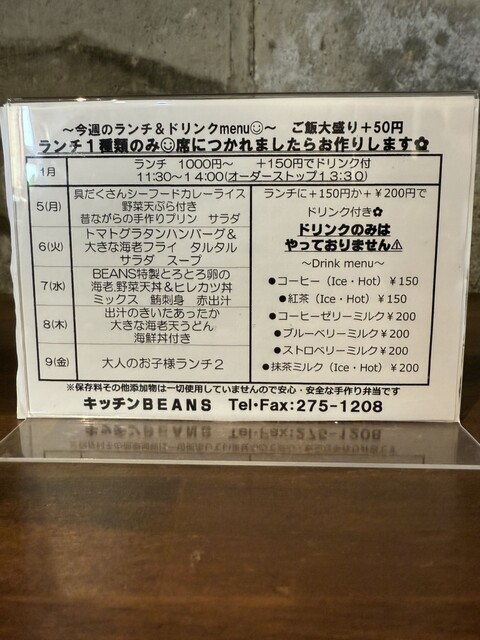 ～今週のランチ＆ドリンクmenu☺～　ご飯大盛り＋50円
ランチ１種類のみ☺席につかれましたらお作りします✿
1月　ランチ　1000円～　＋150円でドリンク付
11:30～14:00(オーダーストップ13:30)
5(月)　具だくさんシーフードカレーライス
野菜天ぷら付き
昔ながらの手作りプリン　サラダ
6(火)　トマトグラタンハンバーグ＆
大きな海老フライ　タルタル
サラダ　スープ
7(水)　BEANS特製とろとろ卵の
海老,野菜天丼＆ヒレカツ丼
ミックス　鮪刺身　赤出汁
8(木)　出汁のきいたあったか
大きな海老天うどん
海鮮丼付き
9(金)　大人のお子様ランチ２
ランチに＋150円か＋￥200円で
ドリンク付き✿
ドリンクのみは
やっておりません⚠
～Drink menu～
●コーヒー（Ice・Hot）￥150
●紅茶（Ice・Hot）￥150
●コーヒーゼリーミルク￥200
●ブルーベリーミルク￥200
●ストロベリーミルク￥200
●抹茶ミルク（Ice・Hot）￥200
※保存料その他添加物は一切使用していませんので安心・安全な手作り弁当です
キッチンBEANS　Tel・Fax:275-1208